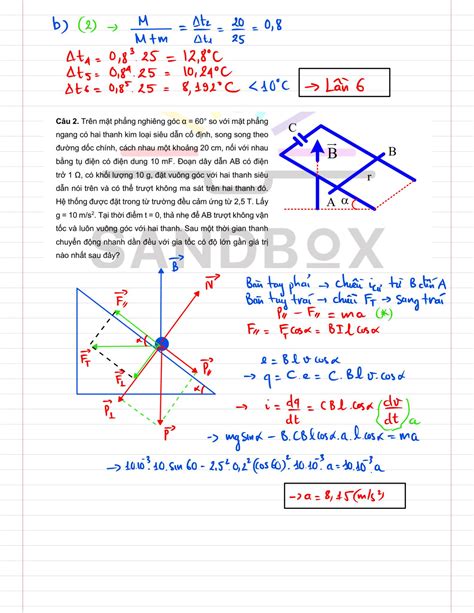 b) (2) → M/(M+m) = Δt₂/Δt₁ = 20/25 = 0,8
Δt₄ = 0,8³ . 25 = 12,8°C
Δt₅ = 0,8⁴ . 25 = 10,24°C
Δt₆ = 0,8⁵ . 25 = 8,192°C < 10°C → Lần 6
Câu 2. Trên mặt phẳng nghiêng góc α = 60° so với mặt phẳng
ngang có hai thanh kim loại siêu dẫn cố định, song song theo
đường dốc chính, cách nhau một khoảng 20 cm, nối với nhau
bằng tụ điện có điện dung 10 mF. Đoạn dây dẫn AB có điện
trở 1 Ω, có khối lượng 10 g, đặt vuông góc với hai thanh siêu
dẫn nói trên và có thể trượt không ma sát trên hai thanh đó.
Hệ thống được đặt trong từ trường đều cảm ứng từ 2,5 T. Lấy
g = 10 m/s². Tại thời điểm t = 0, thả nhẹ để AB trượt không vận
tốc và luôn vuông góc với hai thanh. Sau một thời gian thanh
chuyển động nhanh dần đều với gia tốc có độ lớn gần giá trị
nào nhất sau đây?
C
B
B
r
A
α
SANDBOX
B
N
F//
α
F_T
F⊥
P//
α
P⊥
P
Bàn tay phải → chiều i_cư từ B đến A
Bàn tay trái → chiều F_T → sang trái
P// - F// = ma (*)
F// = F_T cosα = BIl cosα
e = Blv cosα
→ q = C.e = C.Blv.cosα
→ i = dq/dt = CBl.cosα (dv/dt) a
→ mg sinα - B.CBl cosα.a.l cosα = ma
→ 10.10⁻³.10.sin60 - 2,5².0,2²(cos60)².10.10⁻³.a = 10.10⁻³.a
→ a = 8,15 (m/s²)